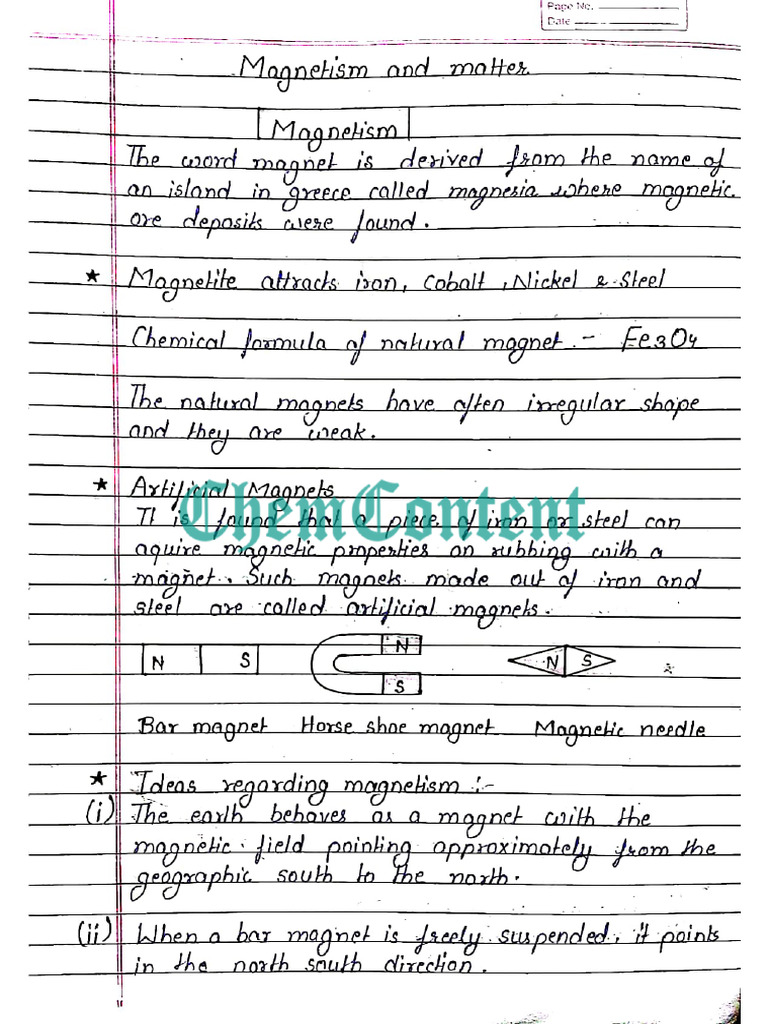 Page No.
Date
Magnetism and matter
Magnetism
The word magnet is derived from the name of
an island in greece called magnesia where magnetic
ore deposits were found.
★ Magnetite attracts iron, Cobalt, Nickel & Steel
Chemical formula of natural magnet - Fe3O4
The natural magnets have often irregular shape
and they are weak.
★ Artificial Magnets
ChemContent
It is found that a piece of iron or steel can
aquire magnetic properties on rubbing with a
magnet. Such magnets made out of iron and
steel are called artificial magnets.
N S N S N S
Bar magnet Horse shoe magnet Magnetic needle
★ Ideas regarding magnetism :-
(i) The earth behaves as a magnet with the
magnetic field pointing approximately from the
geographic south to the north.
(ii) When a bar magnet is freely suspended, it points
in the north south direction.